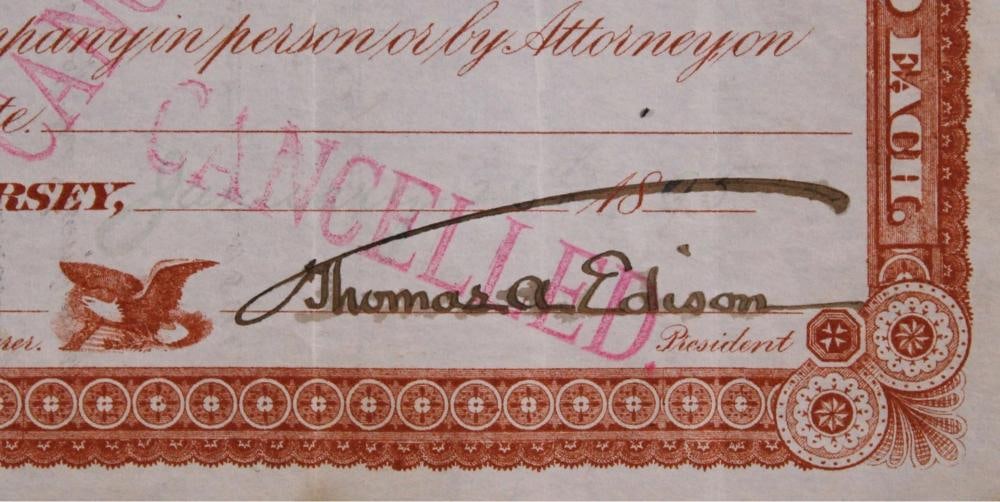 mpany in person or by Attorney, on
te.
CANCELLED.
RSEY, 18
Thomas A Edison
rer. President
EACH.